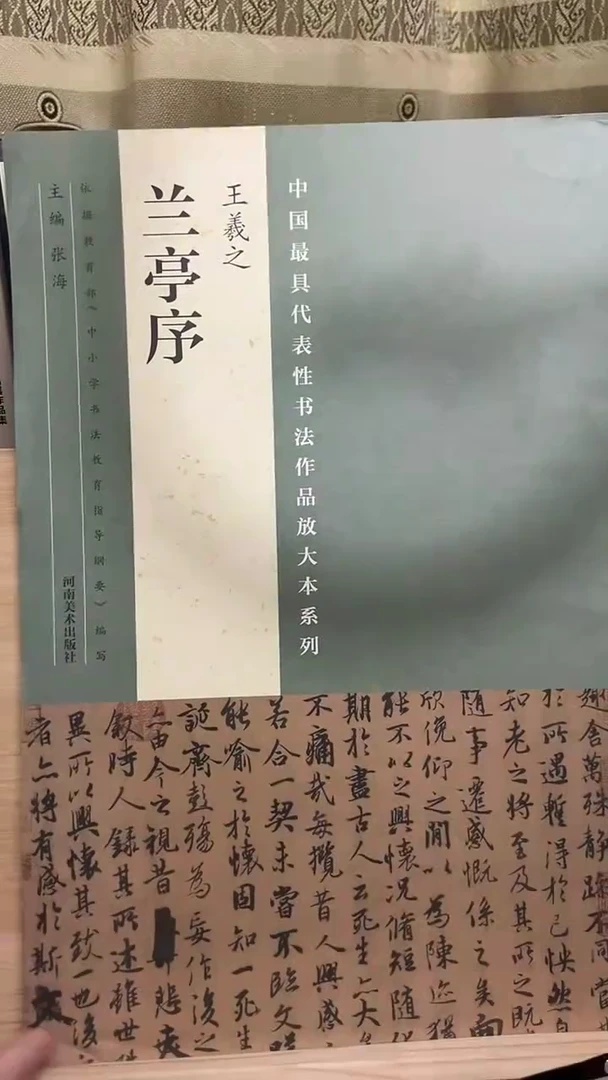 中国最具代表性书法作品放大本系列
王羲之
兰亭序
依据教育部《中小学书法教育指导纲要》编写
主编 张海
河南美术出版社
趣舍萬殊静躁不同當
於所遇蹔得於己怏然自
知老之將至及其所之既
隨事遷感慨係之矣向
欣俛仰之閒以為陳迹猶
能不以之興懷況脩短隨化
期於盡古人云死生亦大
不痛哉每攬昔人興感
若合一契未嘗不臨文嗟
能喻之於懷固知一死生
誕齊彭殤為妄作後之
亦由今之視昔悲夫
叙時人録其所述雖世殊
異所以興懷其致一也後
者亦將有感於斯文